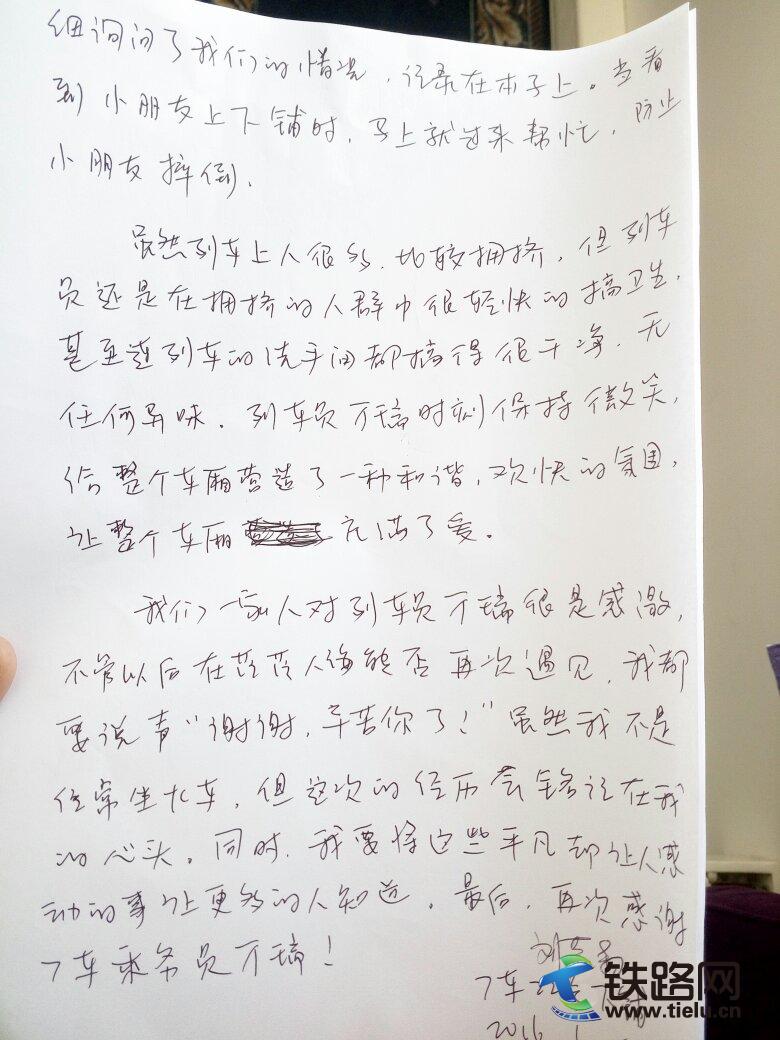 细询问了我们的情况，记录在本子上。当看
到小朋友上下铺时，马上就过来帮忙，防止
小朋友摔倒。
虽然列车上人很多，比较拥挤，但列车
员还是在拥挤的人群中很轻快的搞卫生，
甚至连列车的洗手间都搞得很干净，无
任何异味。列车员万瑞时刻保持微笑，
给整个车厢营造了一种和谐，欢快的氛围，
让整个车厢充满了爱。
我们一家人对列车员万瑞很是感激，
不管以后在茫茫人海能否再次遇见，我都
要说声“谢谢，辛苦你了！”虽然我不是
经常坐火车，但这次的经历会铭记在我
的心头。同时，我要将这些平凡却让人感
动的事让更多的人知道。最后，再次感谢
7车乘务员万瑞！
刘
7车
2016.1
铁路网
www.tielu.cn